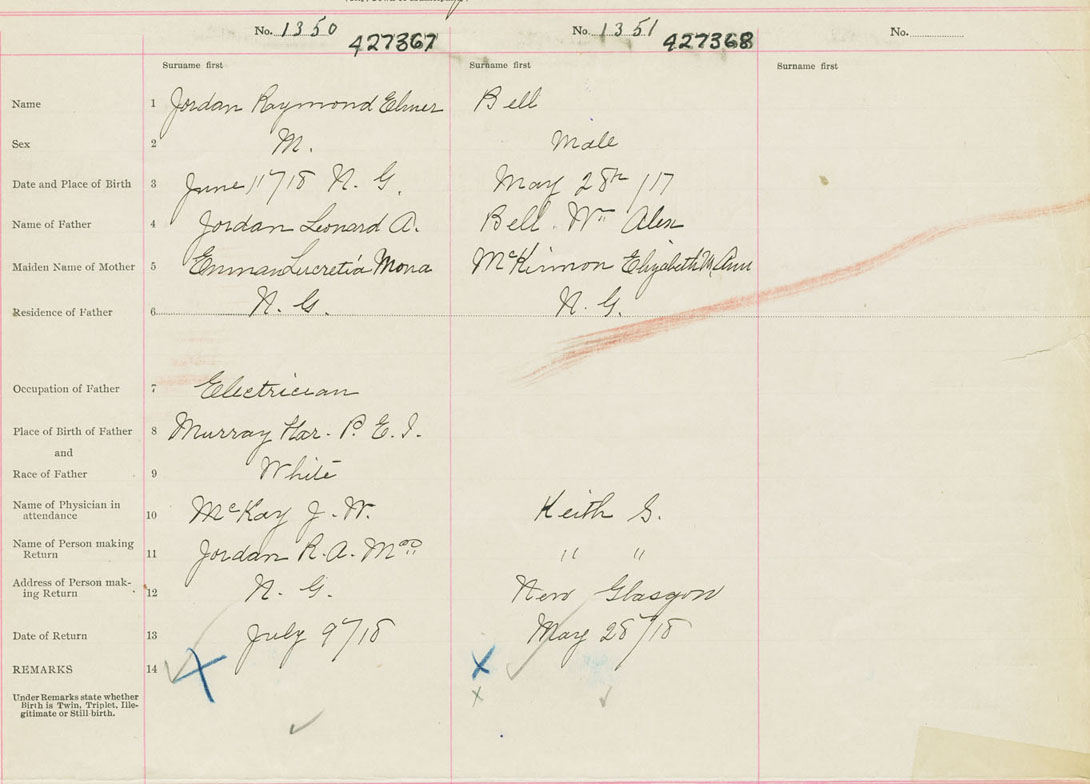 No. 1350 427367 No. 1351 427368 No.
Surname first Surname first Surname first
Name 1 Jordan Raymond Elmer Bell
Sex 2 M. Male
Date and Place of Birth 3 June 11/18 N. G. May 28th/17
Name of Father 4 Jordan Leonard A. Bell. Wm Alex
Maiden Name of Mother 5 Lucretia Mona McKinnon Elizabeth M. Ann
Residence of Father 6 N. G. N. G.
Occupation of Father 7 Electrician
Place of Birth of Father 8 Murray Har. P. E. I.
and
Race of Father 9 White
Name of Physician in
attendance 10 McKay J. W. Keith G.
Name of Person making
Return 11 Jordan R. A. Mrs " "
Address of Person mak-
ing Return 12 N. G. New Glasgow
Date of Return 13 July 9/18 May 28/18
REMARKS 14
Under Remarks state whether
Birth is Twin, Triplet, Ille-
gitimate or Still-birth.